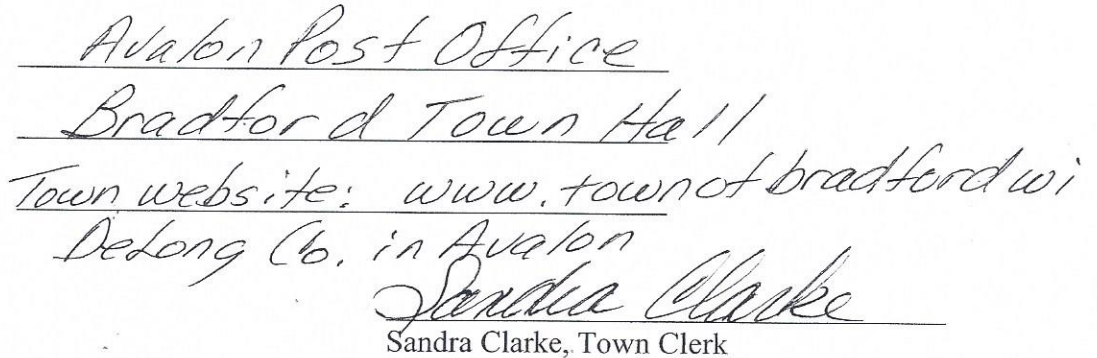 Avalon Post Office
Bradford Town Hall
Town website: www.townofbradfordwi
DeLong Co. in Avalon
Sandra Clarke
Sandra Clarke, Town Clerk